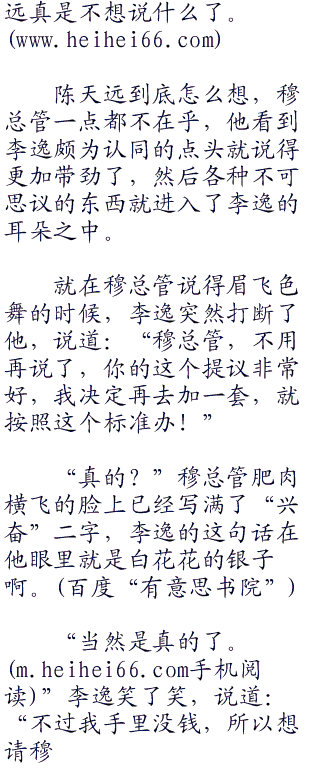 远真是不想说什么了。
(www.heihei66.com)
陈天远到底怎么想，穆
总管一点都不在乎，他看到
李逸颇为认同的点头就说得
更加带劲了，然后各种不可
思议的东西就进入了李逸的
耳朵之中。
就在穆总管说得眉飞色
舞的时候，李逸突然打断了
他，说道：“穆总管，不用
再说了，你的这个提议非常
好，我决定再去加一套，就
按照这个标准办！”
“真的？”穆总管肥肉
横飞的脸上已经写满了“兴
奋”二字，李逸的这句话在
他眼里就是白花花的银子
啊。(百度“有意思书院”)
“当然是真的了。
(m.heihei66.com手机阅
读)”李逸笑了笑，说道：
“不过我手里没钱，所以想
请穆